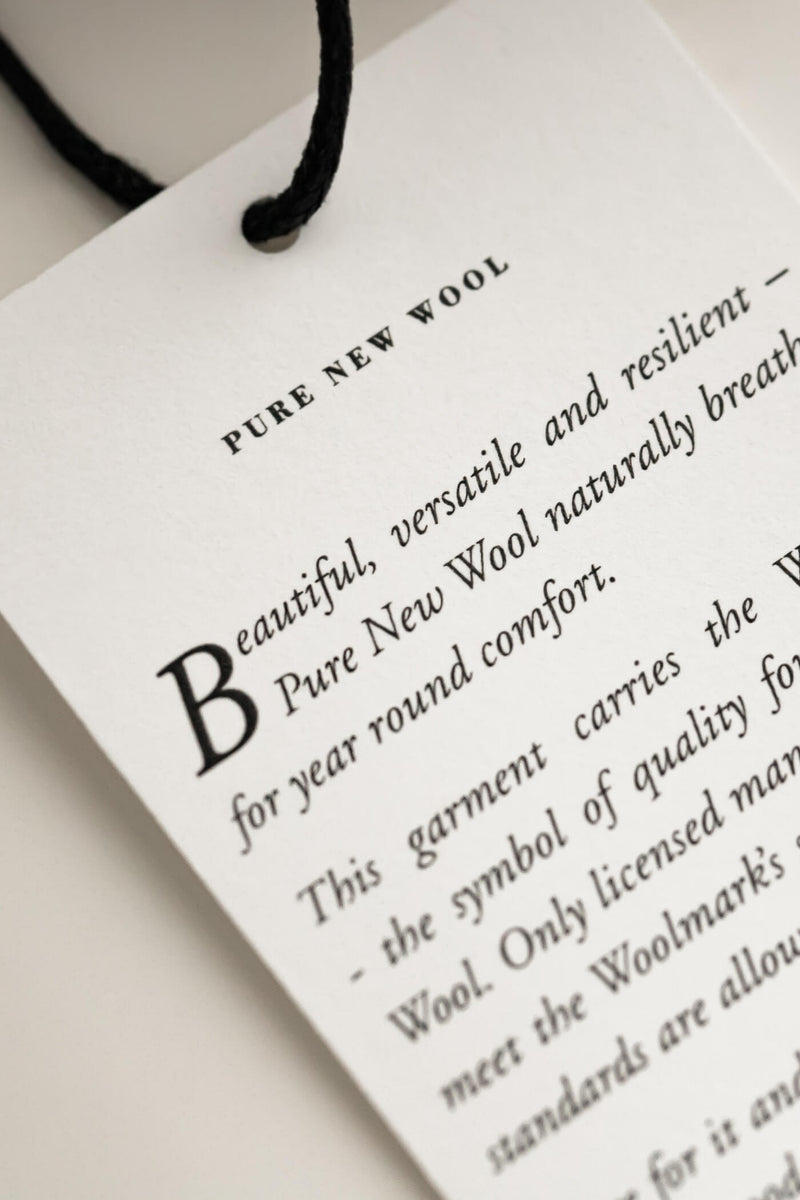 PURE NEW WOOL
Beautiful, versatile and resilient –
Pure New Wool naturally breath
for year round comfort.
This garment carries the W
- the symbol of quality for
Wool. Only licensed man
meet the Woolmark's
standards are allow
for it and